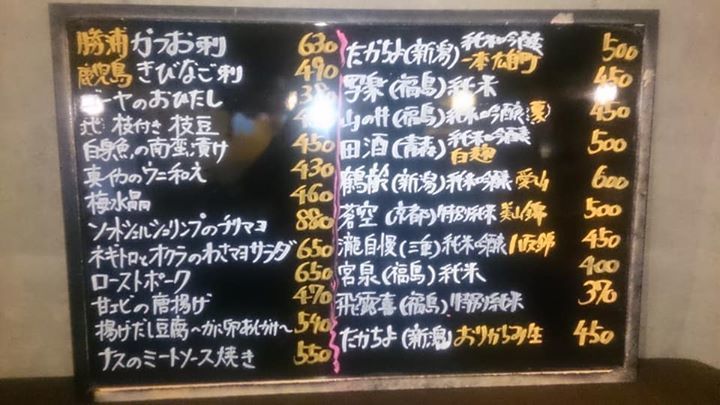 勝浦 かつお刺 630
鹿児島 きびなご刺 490
ゴーヤのおひたし
枝付き 枝豆
白身魚の南蛮漬け 450
真イカのウニ和え 430
梅水晶 460
ソフトシェルシュリンプのチリマヨ 880
ネギトロとオクラのわさマヨサラダ 650
ローストポーク 650
甘エビの唐揚げ 470
揚げだし豆腐〜かに卵あんかけ〜 540
ナスのミートソース焼き 550
たかちよ(新潟) 純米吟醸 一本〆 500
写楽(福島)純米 450
山の井(福島)純米吟醸(夏) 450
田酒(青森) 純米吟醸 白麹 500
鶴齢(新潟)純米吟醸 愛山 600
蒼空(京都)特別純米 美山錦 500
瀧自慢(三重)純米吟醸 八反錦 450
宮泉(福島)純米 400
飛露喜(福島)特別純米 390
たかちよ(新潟)おりがらみ生 450